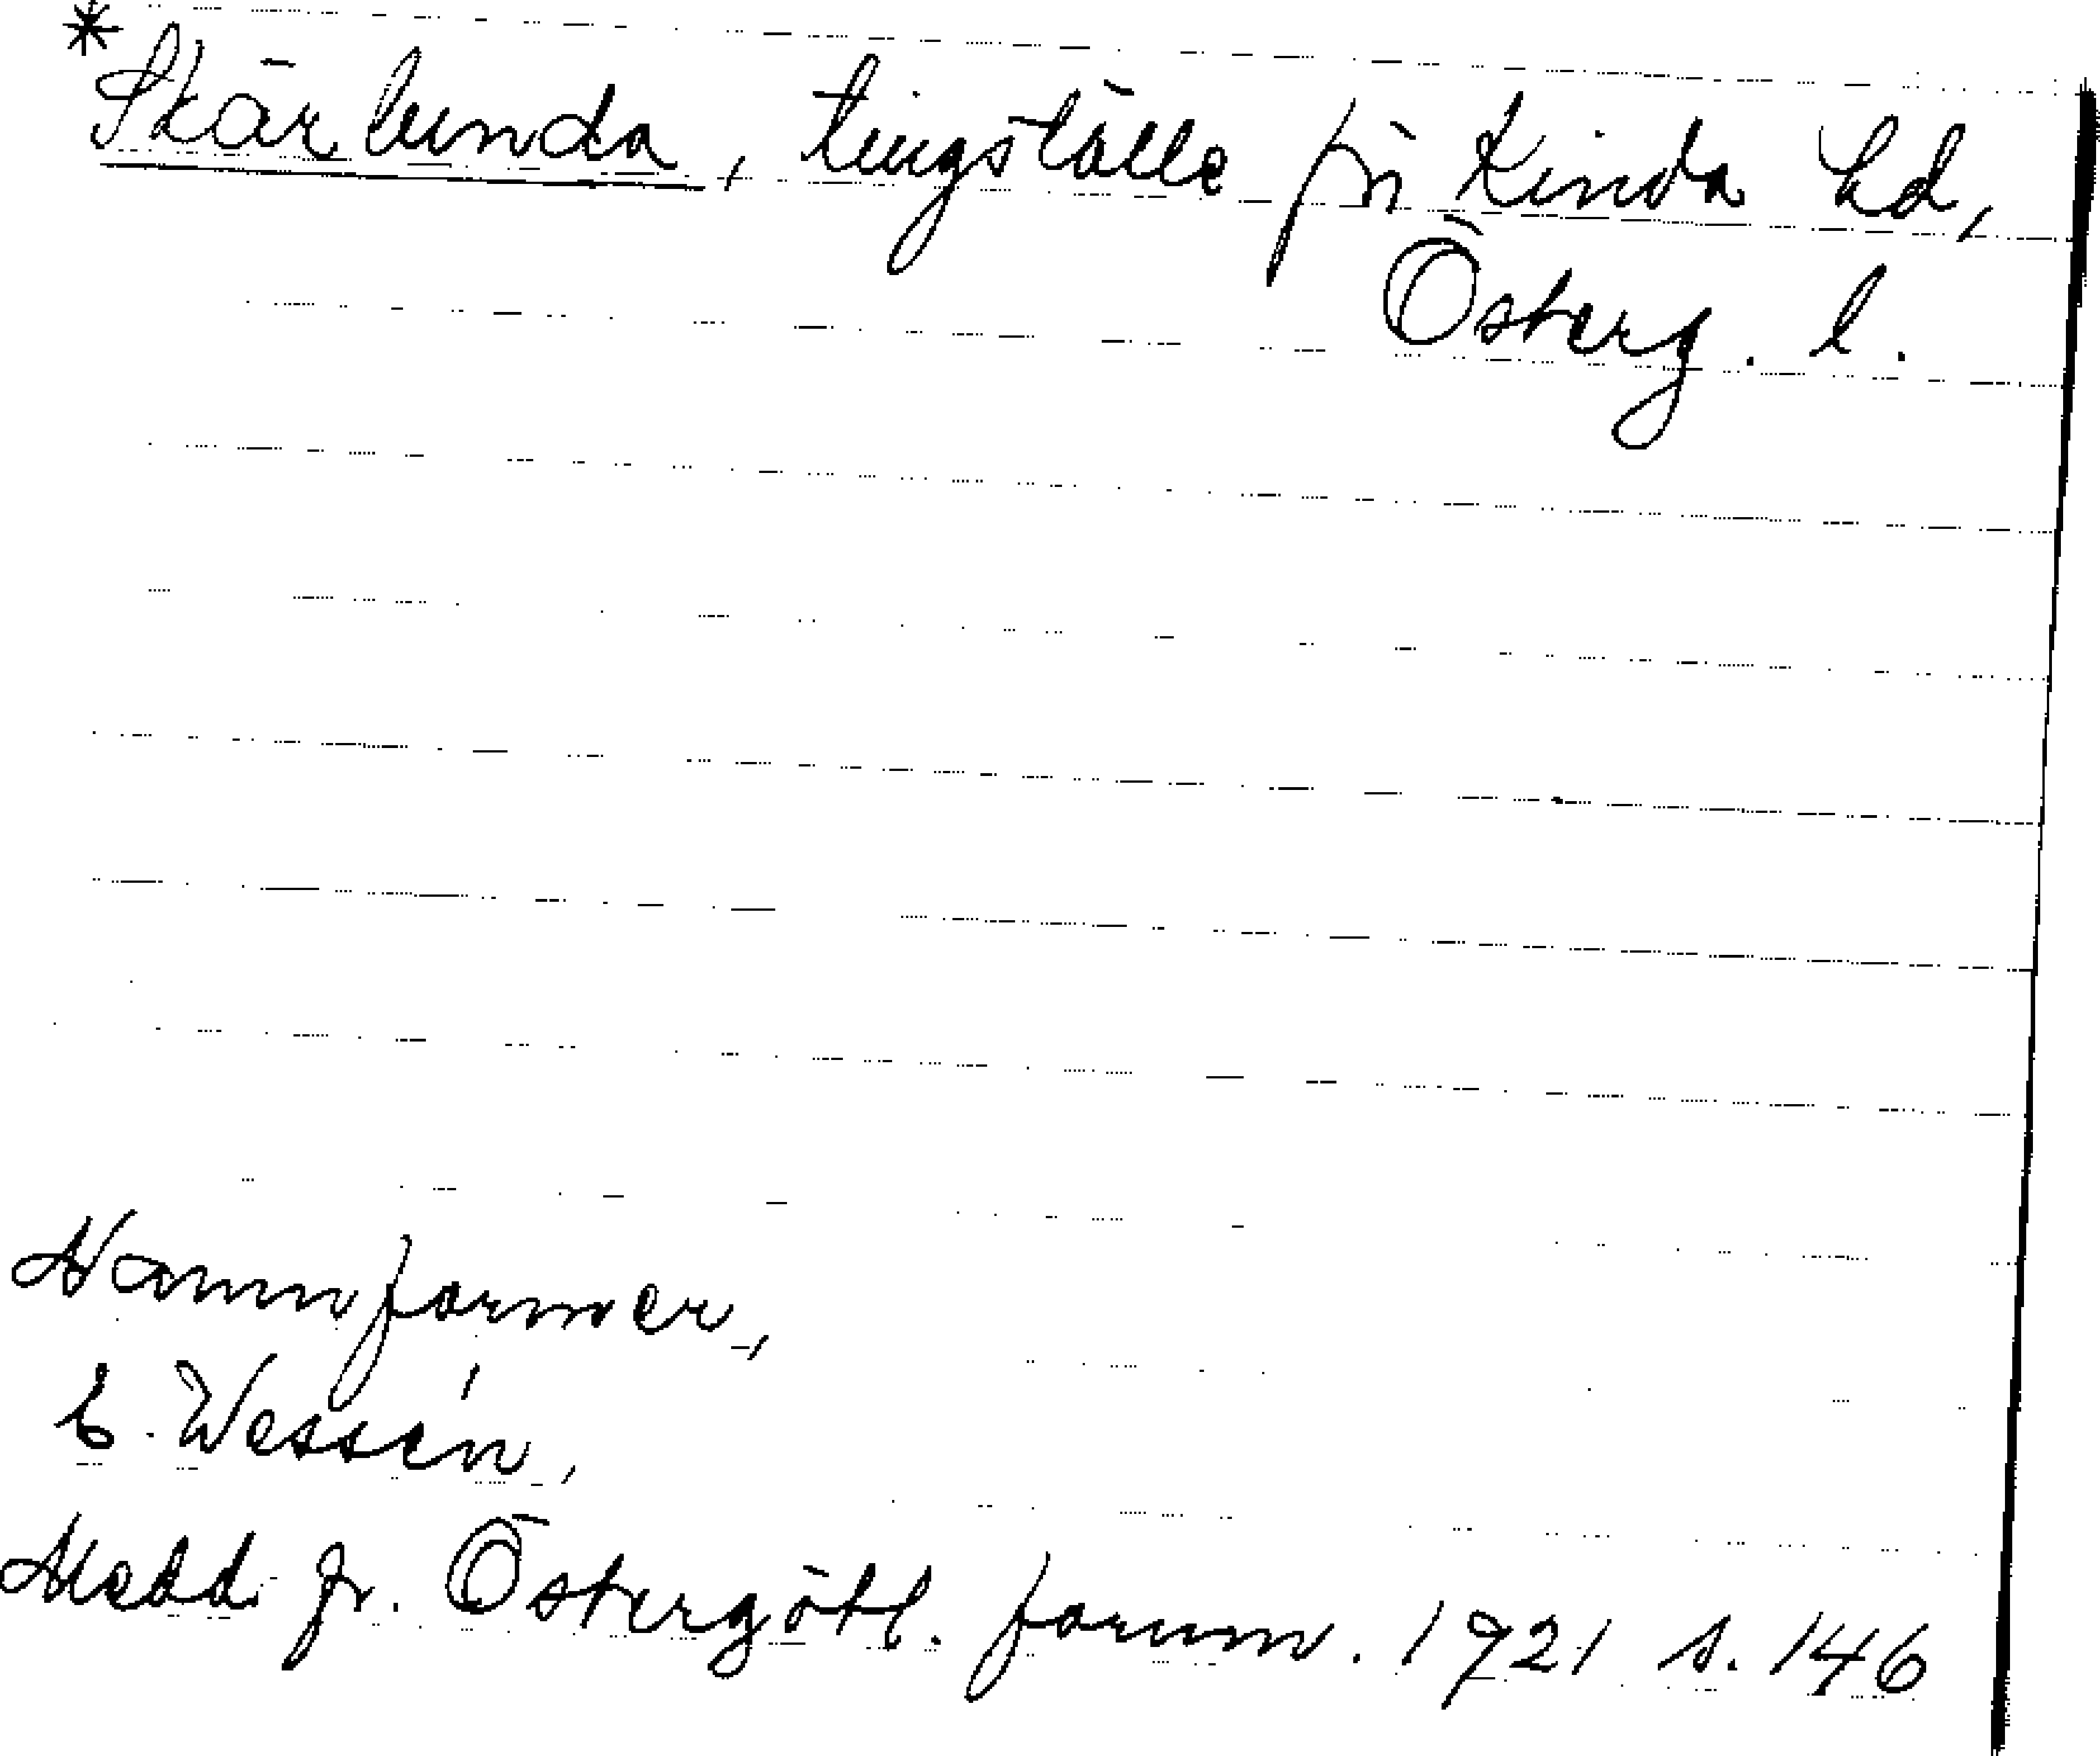 * Skärlunda, tingställe för Kinda hd,
Österg. l.
Namnformer,
E. Wessén,
Medd fr. Östergötl. fornm. 1921 s. 146